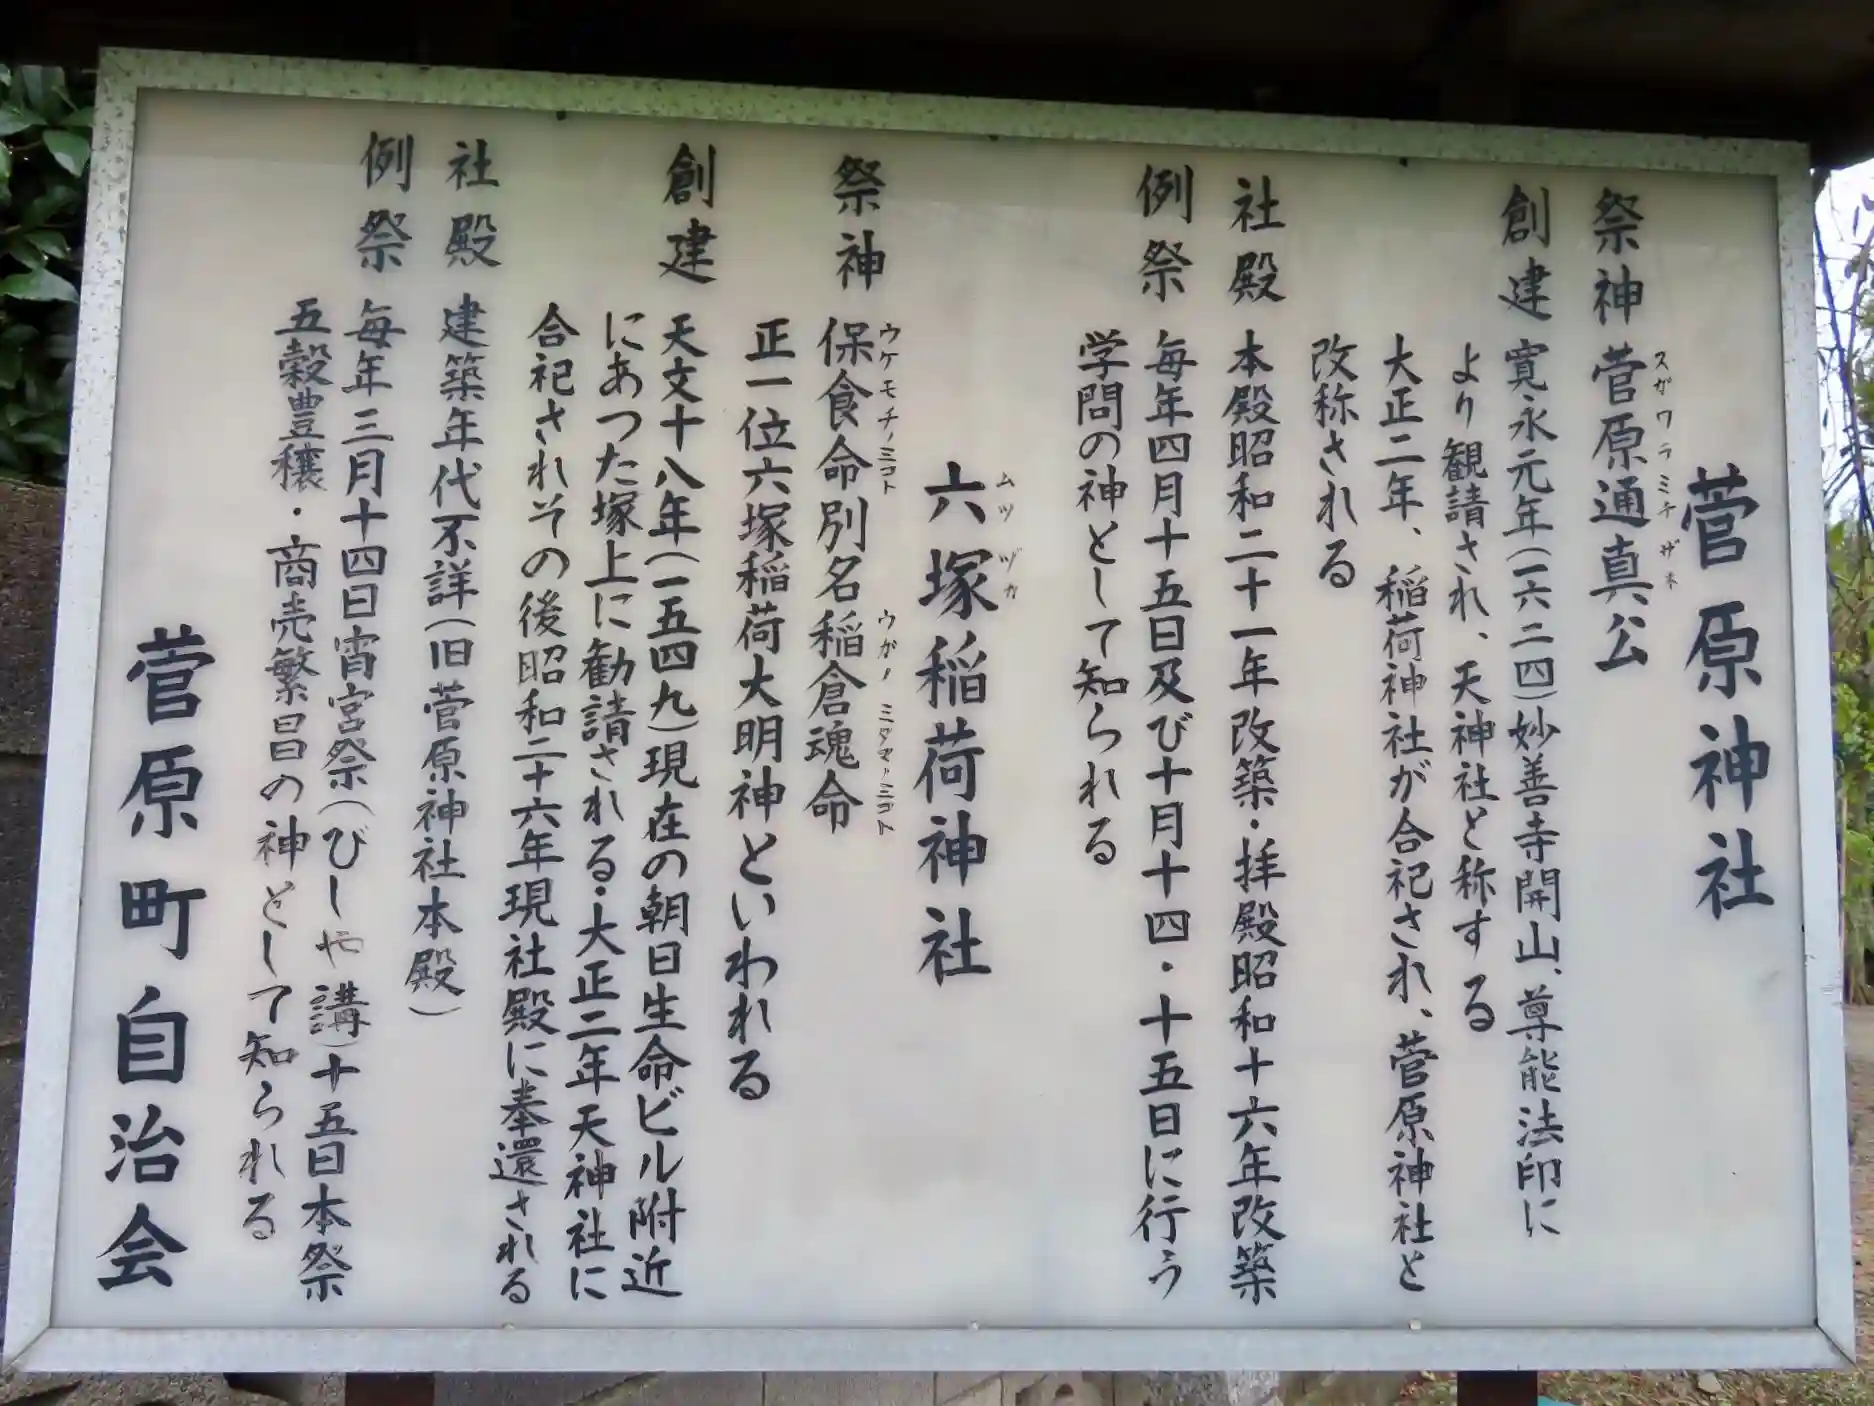 菅原神社
祭神 菅原通真公
スガワラミチザネ
創建 寛永元年(一六二四)妙善寺開山、尊能法印に
より観請され、天神社と称する
大正二年、稲荷神社が合祀され、菅原神社と
改称される
社殿 本殿昭和二十一年改築・拝殿昭和十六年改築
例祭 毎年四月十五日及び十月十四・十五日に行う
学問の神として知られる
六塚稲荷神社
ムツヅカ
祭神 保食命別名稲倉魂命
ウケモチノミコト ウガノミタマノミコト
正一位六塚稲荷大明神といわれる
創建 天文十八年(一五四九)現在の朝日生命ビル附近
にあつた塚上に勧請される・大正二年天神社に
合祀されその後昭和二十六年現社殿に奉還される
社殿 建築年代不詳(旧菅原神社本殿)
例祭 毎年三月十四日宵宮祭(びしや講)十五日本祭
五穀豊穣・商売繁昌の神として知られる
菅原町自治会